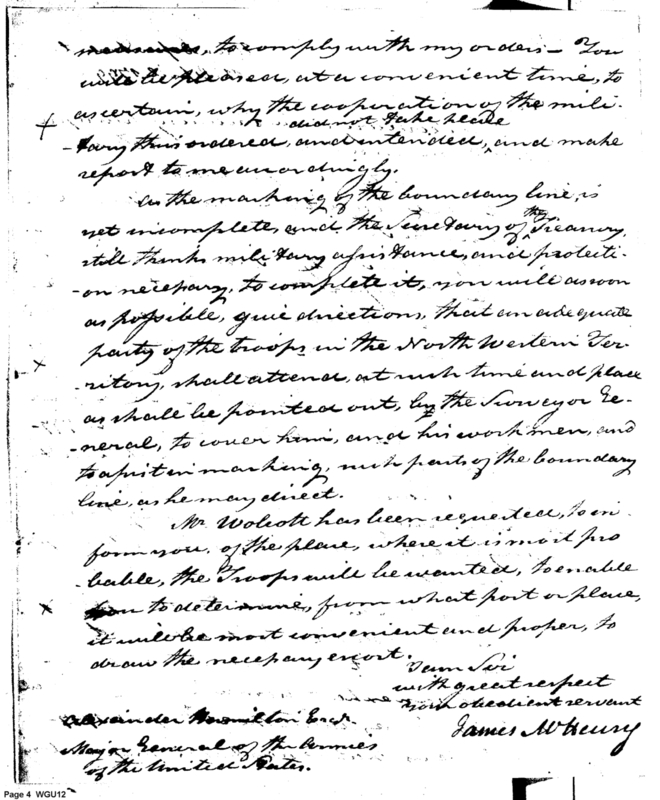 measures, to comply with my orders – You
will be pleased, at a convenient time, to
ascertain, why the cooperation of the mili-
did not take place
-tary thus ordered, and intended, and make
report to me accordingly.
As the marking of the boundary line, is
yet incomplete, and the Secretary of the Treasury
still thinks military assistance, and protecti-
-on necessary, to complete it, you will as soon
as possible, give directions, that an adequate
party of the troops in the North Western Ter-
-ritory, shall attend, at such time and place
as shall be pointed out, by the Surveyor Ge-
-neral, to cover him, and his workmen, and
to assist in marking, such parts of the boundary
line, as he may direct.
Mr. Wolcott has been requested, to in
form you, of the place, where it is most pro
bable, the Troops will be wanted, to enable
you to determine, from what post or place,
it will be most convenient and proper, to
draw the necessary escort.
I am Sir
with great respect
Your obedient servant
James McHenry
Alexander Hamilton Esqr.
Major General of the Armies
of the United States.
Page 4 WGU12